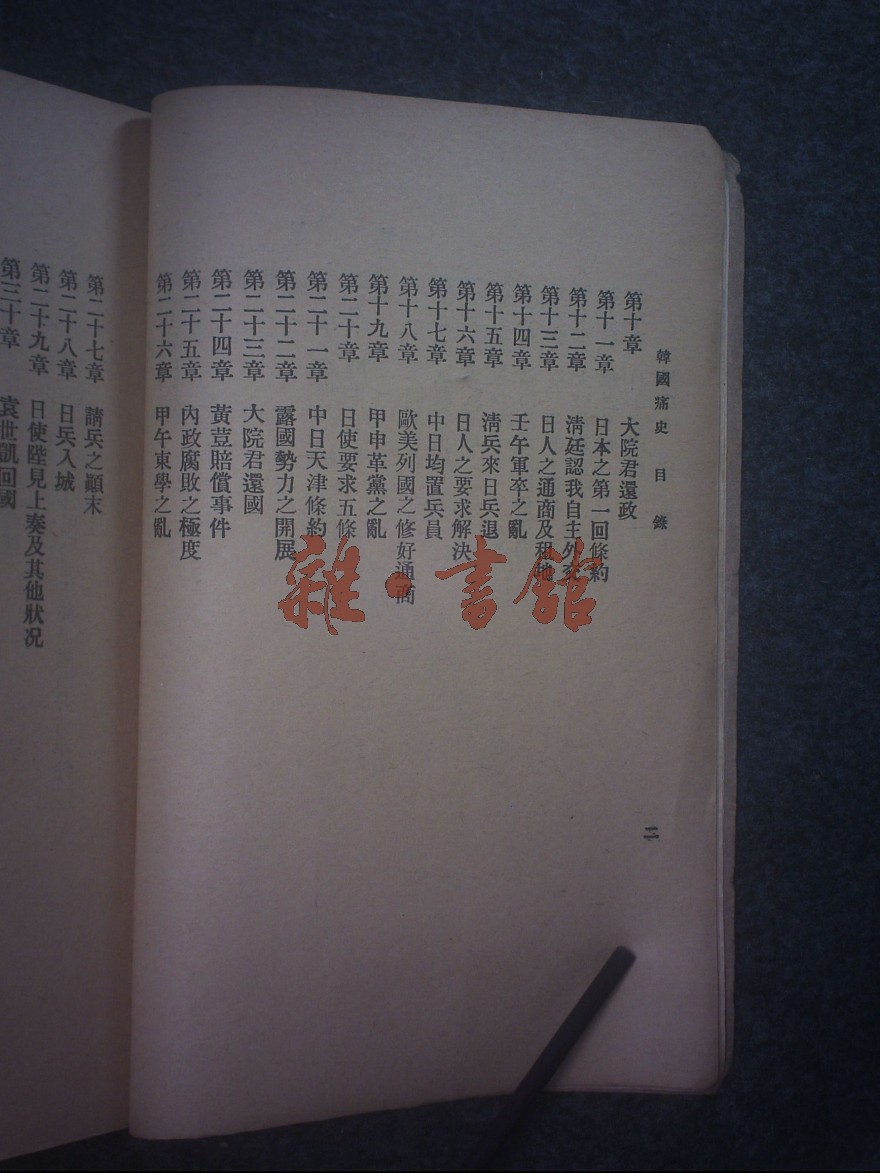 韓國痛史 目錄
二
第十章 大院君還政
第十一章 日本之第一回條約
第十二章 清廷認我自主外交
第十三章 日人之通商及租地
第十四章 壬午軍卒之亂
第十五章 清兵來日兵退
第十六章 日人之要求解決
第十七章 中日均置兵員
第十八章 歐美列國之修好通商
第十九章 甲申革黨之亂
第二十章 日使要求五條
第二十一章 中日天津條約
第二十二章 露國勢力之開展
第二十三章 大院君還國
第二十四章 黃荳賠償事件
第二十五章 內政腐敗之極度
第二十六章 甲午東學之亂
第二十七章 請兵之顚末
第二十八章 日兵入城
第二十九章 日使陛見上奏及其他狀况
第三十章 袁世凱回國
雜·書館